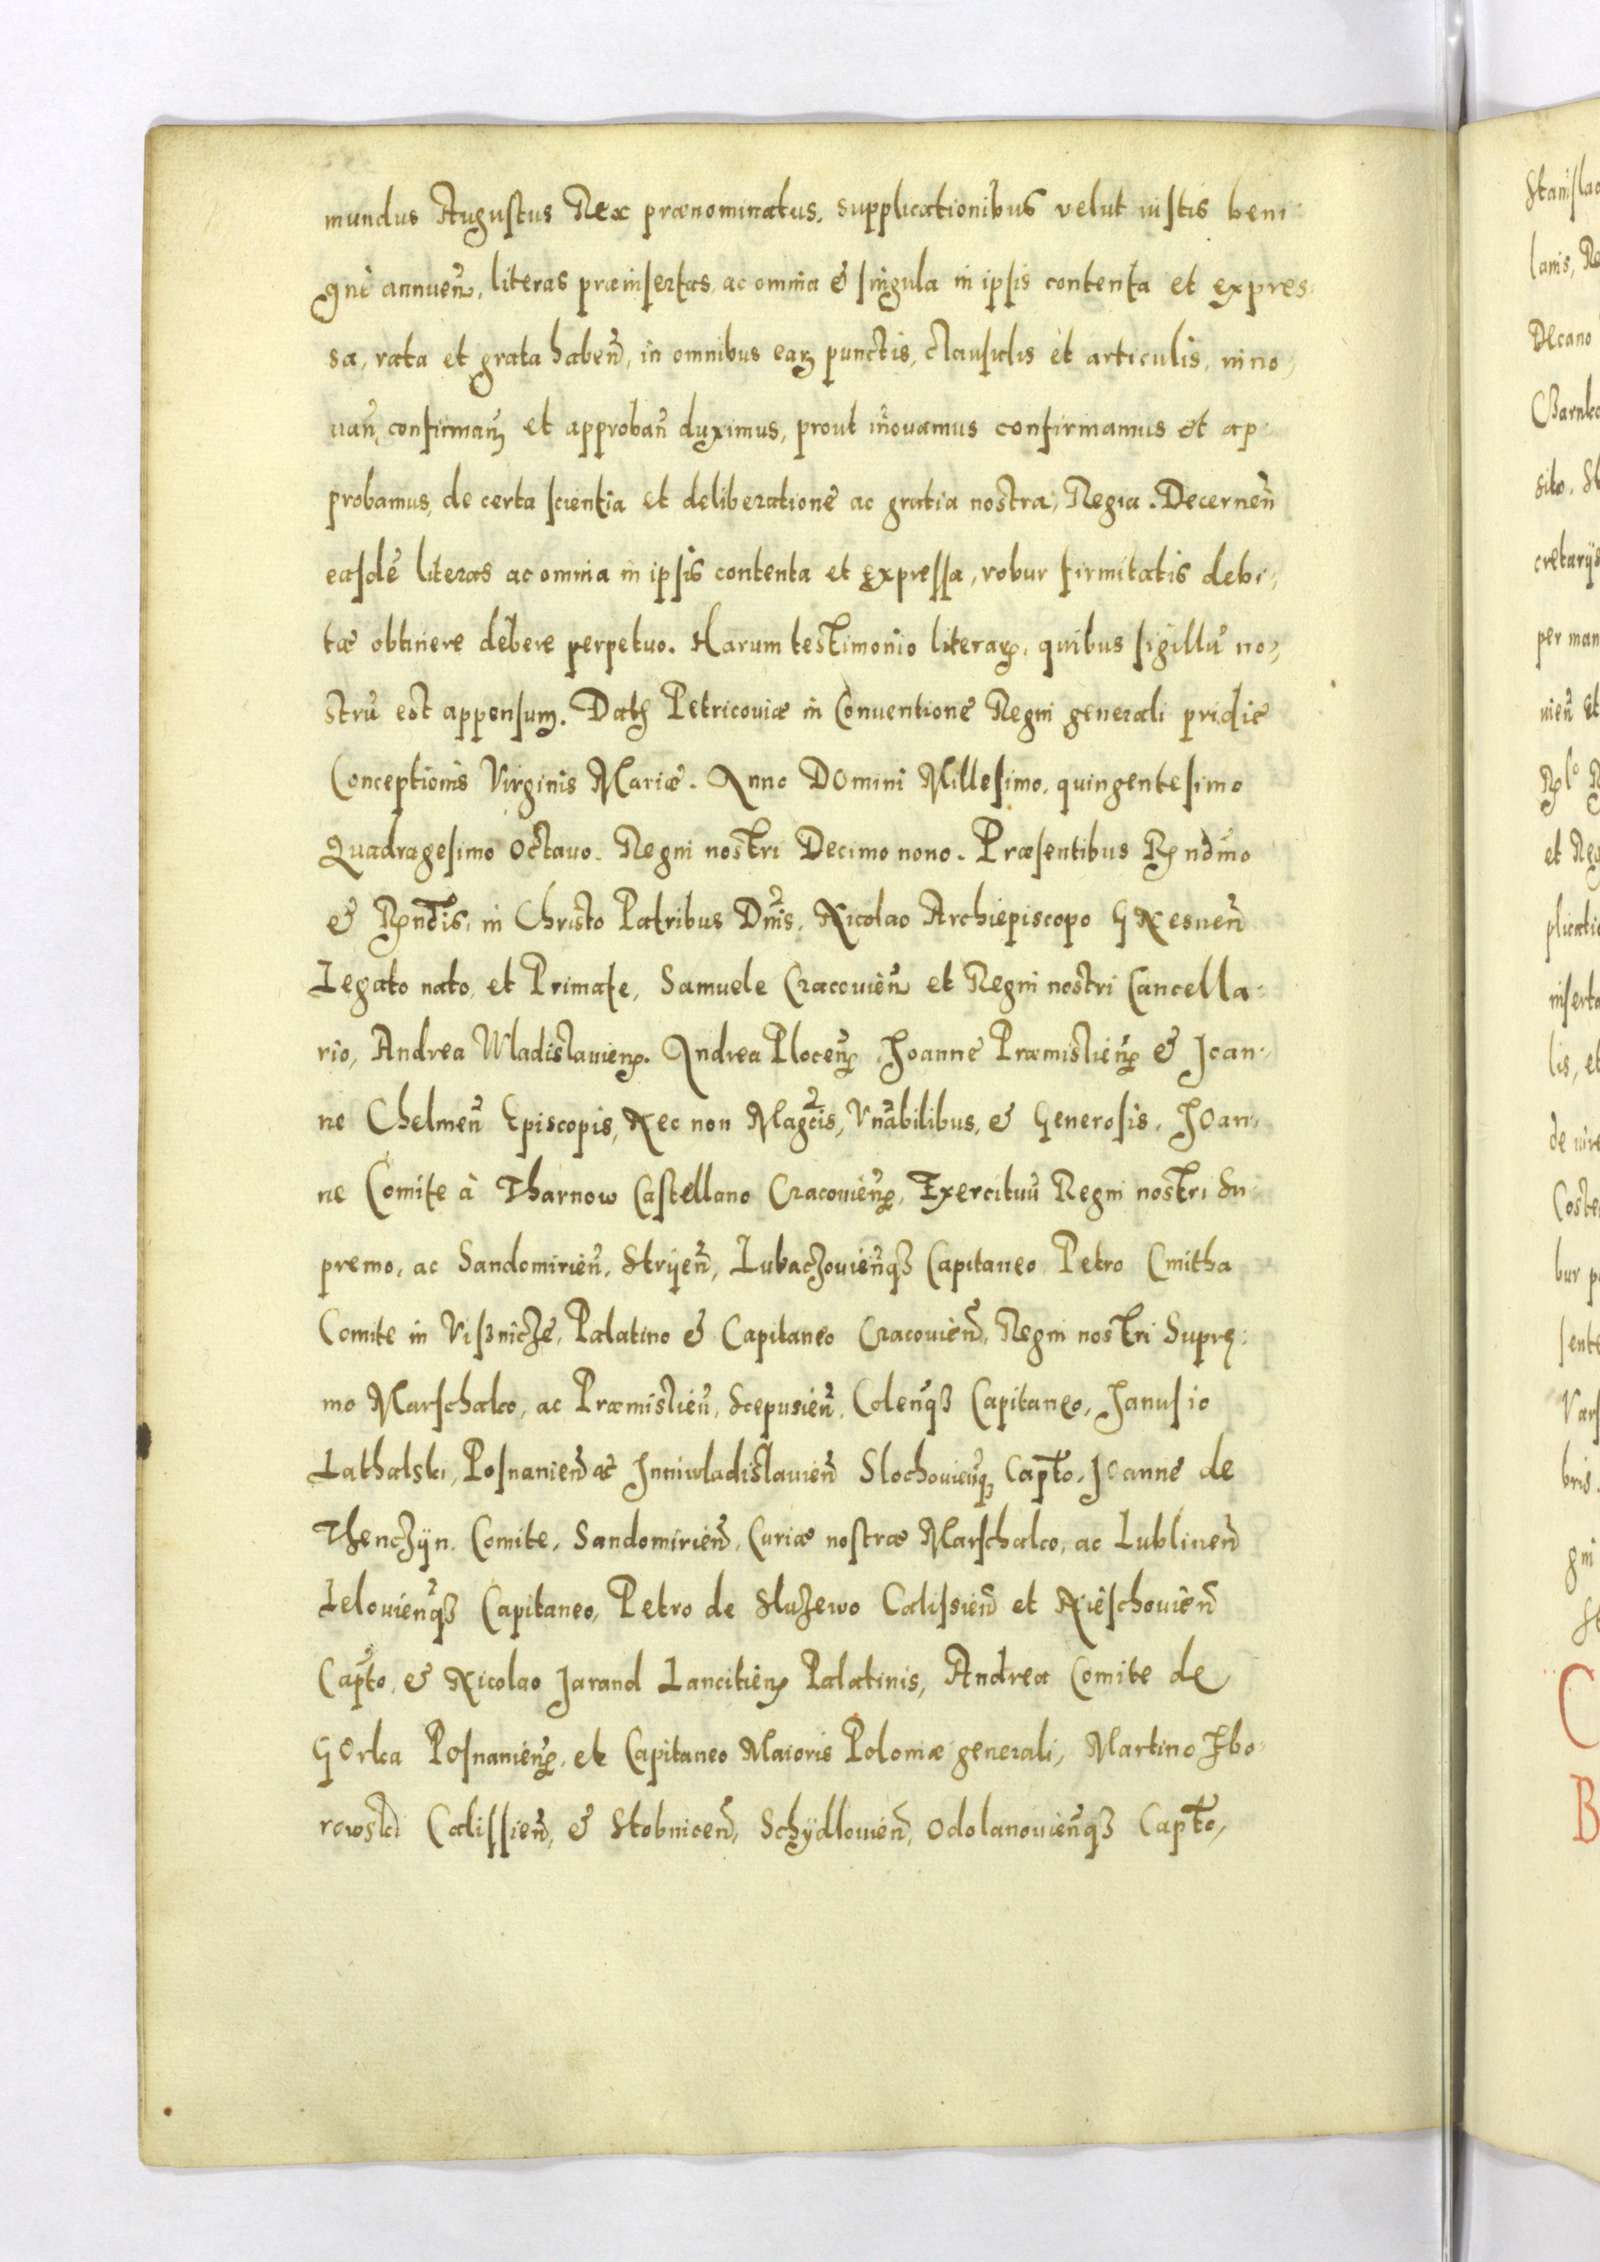 mundus Augustus Rex prænominatus, supplicationibus velut iustis beni-
gnè annuen̄, literas præinsertas, ac omnia & singula in ipsis contenta et expres-
sa, rata et grata haben̄, in omnibus earꝝ punctis, clausulis et articulis, inno-
uan̄, confirman̄ et approban̄ duximus, prout iñouamus confirmamus et ap-
probamus, de certa scientia et deliberatione ac gratia nostra, Regia. Decernen̄
easdē literas ac omnia in ipsis contenta et expressa, robur firmitatis debi-
tæ obtinere debere perpetuo. Harum testimonio literarꝝ, quibus sigillū no-
strū est appensum. Datꝫ Petricouiæ in Conuentione Regni generali pridie
Conceptionis Virginis Mariæ. Anno Domini Millesimo, quingentesimo
Quadragesimo octauo. Regni nostri Decimo nono. Præsentibus Rꝫndm̄o
& Rꝫndīs, in Christo Patribus Dn̄is, Nicolao Archiepiscopo GNesnen̄
Legato nato, et Primate, Samuele Cracouien̄ et Regni nostri Cancella-
rio, Andrea Wladislauien̄. Andrea Plocen̄, Joanne Præmislien̄ & Joan-
ne Chelmen̄ Episcopis, Nec non Magc̄is, Vn̄abilibus, & Generosis, Joan-
ne Comite à Tharnow Castellano Cracouien̄, Exercituū Regni nostri Su-
premo, ac Sandomirien̄, Stryen̄, Lubaczouien̄qꝫ Capitaneo Petro Cmitha
Comite in Vißnicze, Palatino & Capitaneo Cracouien̄, Regni nostri Supre-
mo Marschalco, ac Præmislien̄, Scepusien̄, Colen̄qꝫ Capitaneo, Janusio
Lathalski, Posnanien̄ ac Jnniwladislauien̄ Slochouien̄qꝫ Capt̄o, Joanne de
Thenczyn Comite, Sandomirien̄, Curiæ nostræ Marschalco, ac Lublinen̄
Lelouien̄qꝫ Capitaneo, Petro de Sluzewo Calissien̄ et Nieschouien̄
Capt̄o, & Nicolao Jarand Lancitien̄ Palatinis, Andrea Comite de
GOrka Posnanien̄, et Capitaneo Maioris Poloniæ generali, Martino Zbo-
rowski Calissien̄, & Stobnicen̄, Schydlouien̄, Odolanouien̄qꝫ Capt̄o,